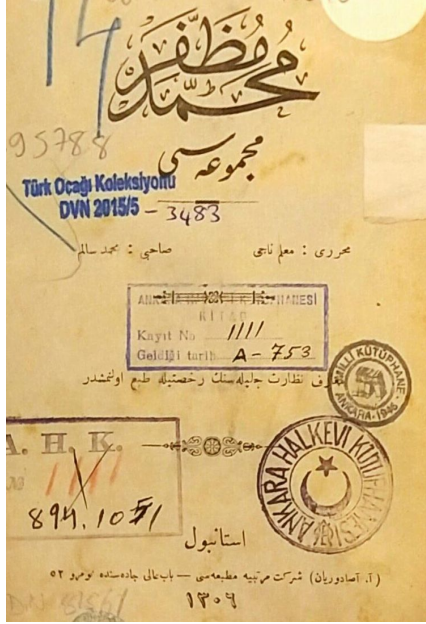 محمد مظفر
مجموعه سی
95788
Türk Ocağı Koleksiyonu
DVN 2015/5 - 3483
محرری : معلم ناجی
صاحبی : محمد سالم
KİTAP
Kayıt No 1111
Geldiği tarih A - 753
معارف نظارت جلیله‌سنك رخصتیله طبع اولنمشدر
MİLLİ KÜTÜPHANE
ANKARA-1946
A. H. K.
No 1111
894.1051
ANKARA HALKEVİ KÜTÜPHANESİ
استانبول
(آ. آصادوریان) شركت مرتبیه مطبعه‌سی — باب عالی جاده‌سنده نومرو ٥٢
١٣٠٦